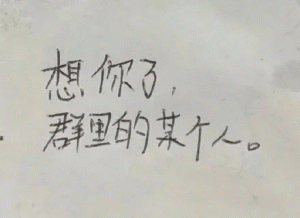 想你了,
群里的某个人。